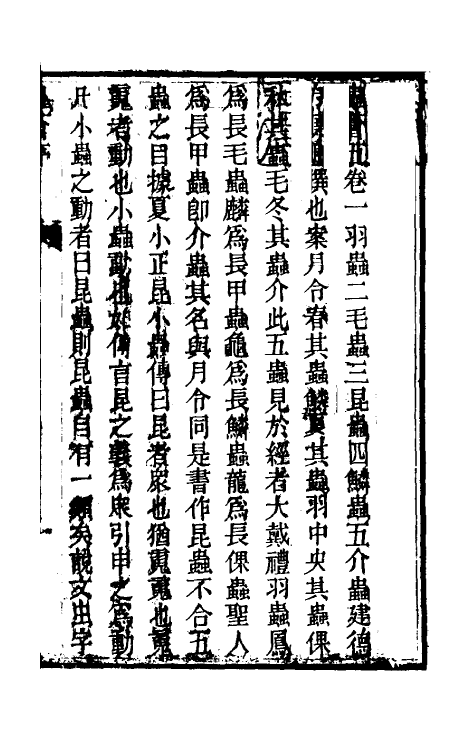 蟲薈五卷一羽蟲二毛蟲三昆蟲四鱗蟲五介蟲建德
方旭撰也案月令春其蟲鱗夏其蟲羽中央其蟲倮
秋其蟲毛冬其蟲介此五蟲見於經者大戴禮羽蟲鳳
爲長毛蟲麟爲長甲蟲龜爲長鱗蟲龍爲長倮蟲聖人
爲長甲蟲卽介蟲其名與月令同是書作昆蟲不合五
蟲之目據夏小正昆小蟲傳曰昆者衆也猶䰟䰟也䰟
䰟者動也小蟲動也如傳言昆之義爲衆引申之爲動
凡小蟲之動者曰昆蟲則昆蟲自有一類矣說文虫字